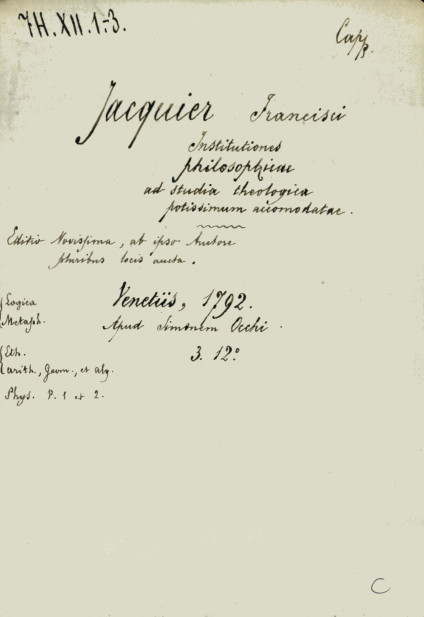 7H.XII.1-3.
Capp.
Jacquier Francisci
Institutiones
philosophicae
ad studia theologica
potissimum accomodatae.
Editio Novissima, ab ipso Auctore
pluribus locis aucta.
Logica
Metaph.
Venetiis, 1792.
Apud Simonem Occhi.
Eth.
arith., Geom., et alg.
3. 12.º
Phys. P. 1 et 2.
C